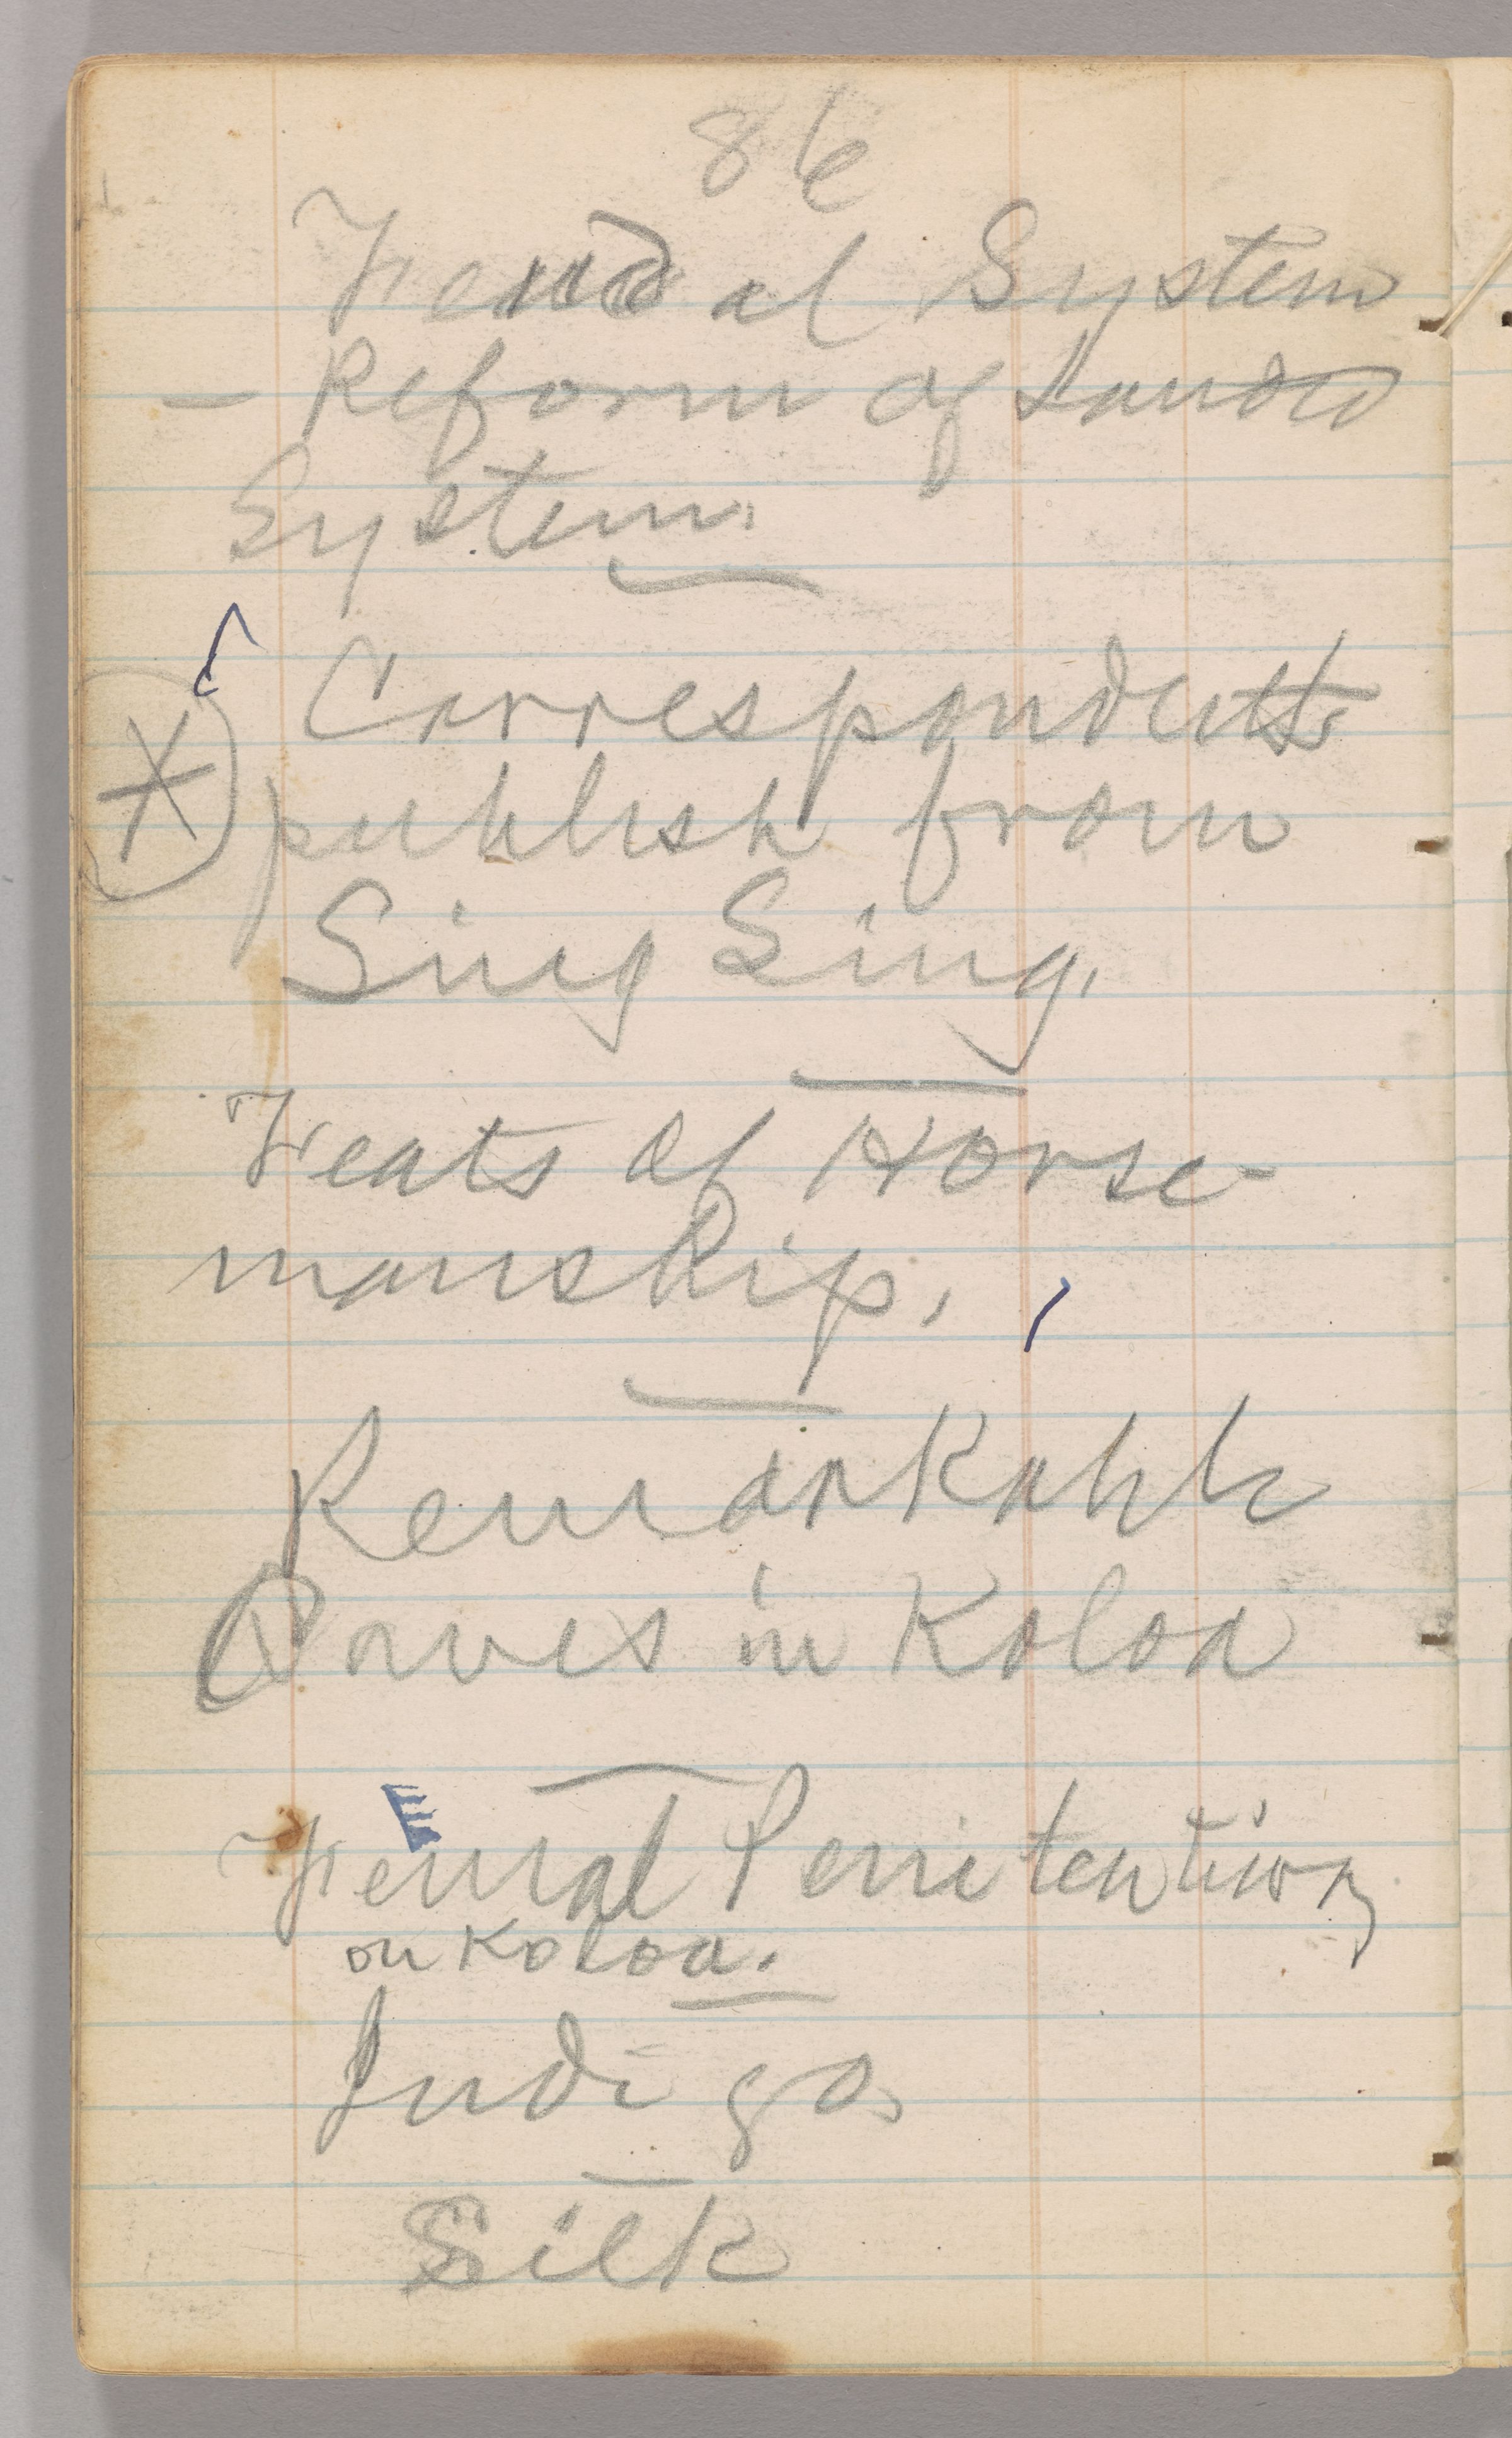 86
Feudal System
- Reform of Landed
System.
Correspondents
publish from
Sing Sing.
Feats of Horse-
manship.
Remarkable
Caves in Koloa
Femal Penitentiary
on Koloa.
Indigo
Silk